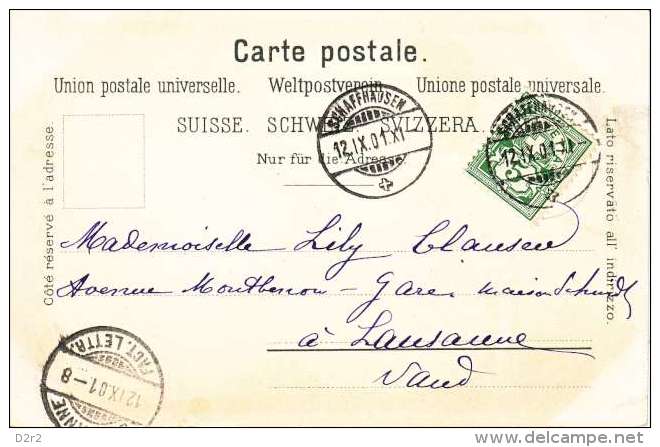 Carte postale.
Union postale universelle. Weltpostverein Unione postale universale.
SUISSE. SCHWEIZ. SVIZZERA.
Nur für die Adresse
Côté réservé à l'adresse.
Lato riservato all' indirizzo.
SCHAFFHAUSEN
12.IX.01.XI
SCHAFFHAUSEN
12.IX.01.XI
Mademoiselle Lily Clausen
Avenue Montbenon - Gare, maison Schmidt
à Lausanne
Vaud
FACT. LETTR.
12.IX.01-8
D2r2
delcampe.net